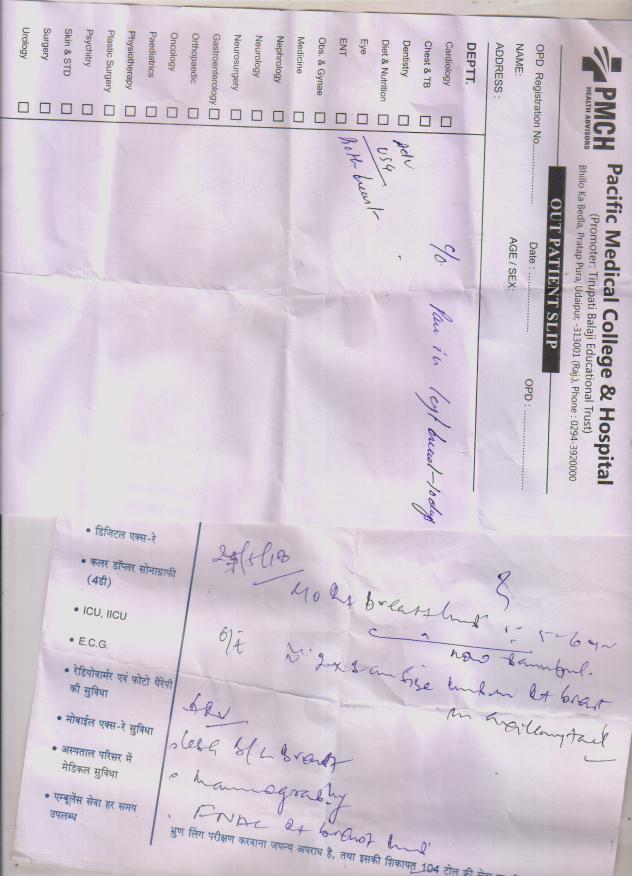 PMCH
HEALTH ADVISORS
Pacific Medical College & Hospital
(Promoter: Tirupati Balaji Educational Trust)
Bhillo Ka Bedla, Pratap Pura, Udaipur, -313001 (Raj.), Phone : 0294-3920000
OUT PATIENT SLIP
OPD Registration No. Date : OPD :
NAME: AGE / SEX:
ADDRESS :
DEPTT.
Cardiology
Chest & TB
Dentistry
Diet & Nutrition
Eye
ENT
Obs. & Gynae
Medicine
Nephrology
Neurology
Neurosurgery
Gastroenterology
Orthopaedic
Oncology
Paediatrics
Physiotherapy
Plastic Surgery
Psychitry
Skin & STD
Surgery
Urology
c/o Pain in left breast - 10 days
Adv
USG
Both breast
• डिजिटल एक्स-रे
• कलर डॉप्लर सोनाग्राफी
(4डी)
• ICU, IICU
• E.C.G.
• रेडियोवार्मर एवं फोटो थैरेपी
की सुविधा
• मोबाईल एक्स-रे सुविधा
• अस्पताल परिसर में
मेडिकल सुविधा
• एम्बूलेंस सेवा हर समय
उपलब्ध
breast
O/E
breast
Adv
B/L Breast
Mammography
FNAC breast
भ्रुण लिंग परीक्षण करवाना जघन्य अपराध है, तथा इसकी शिकायत 104 टोल फ्री